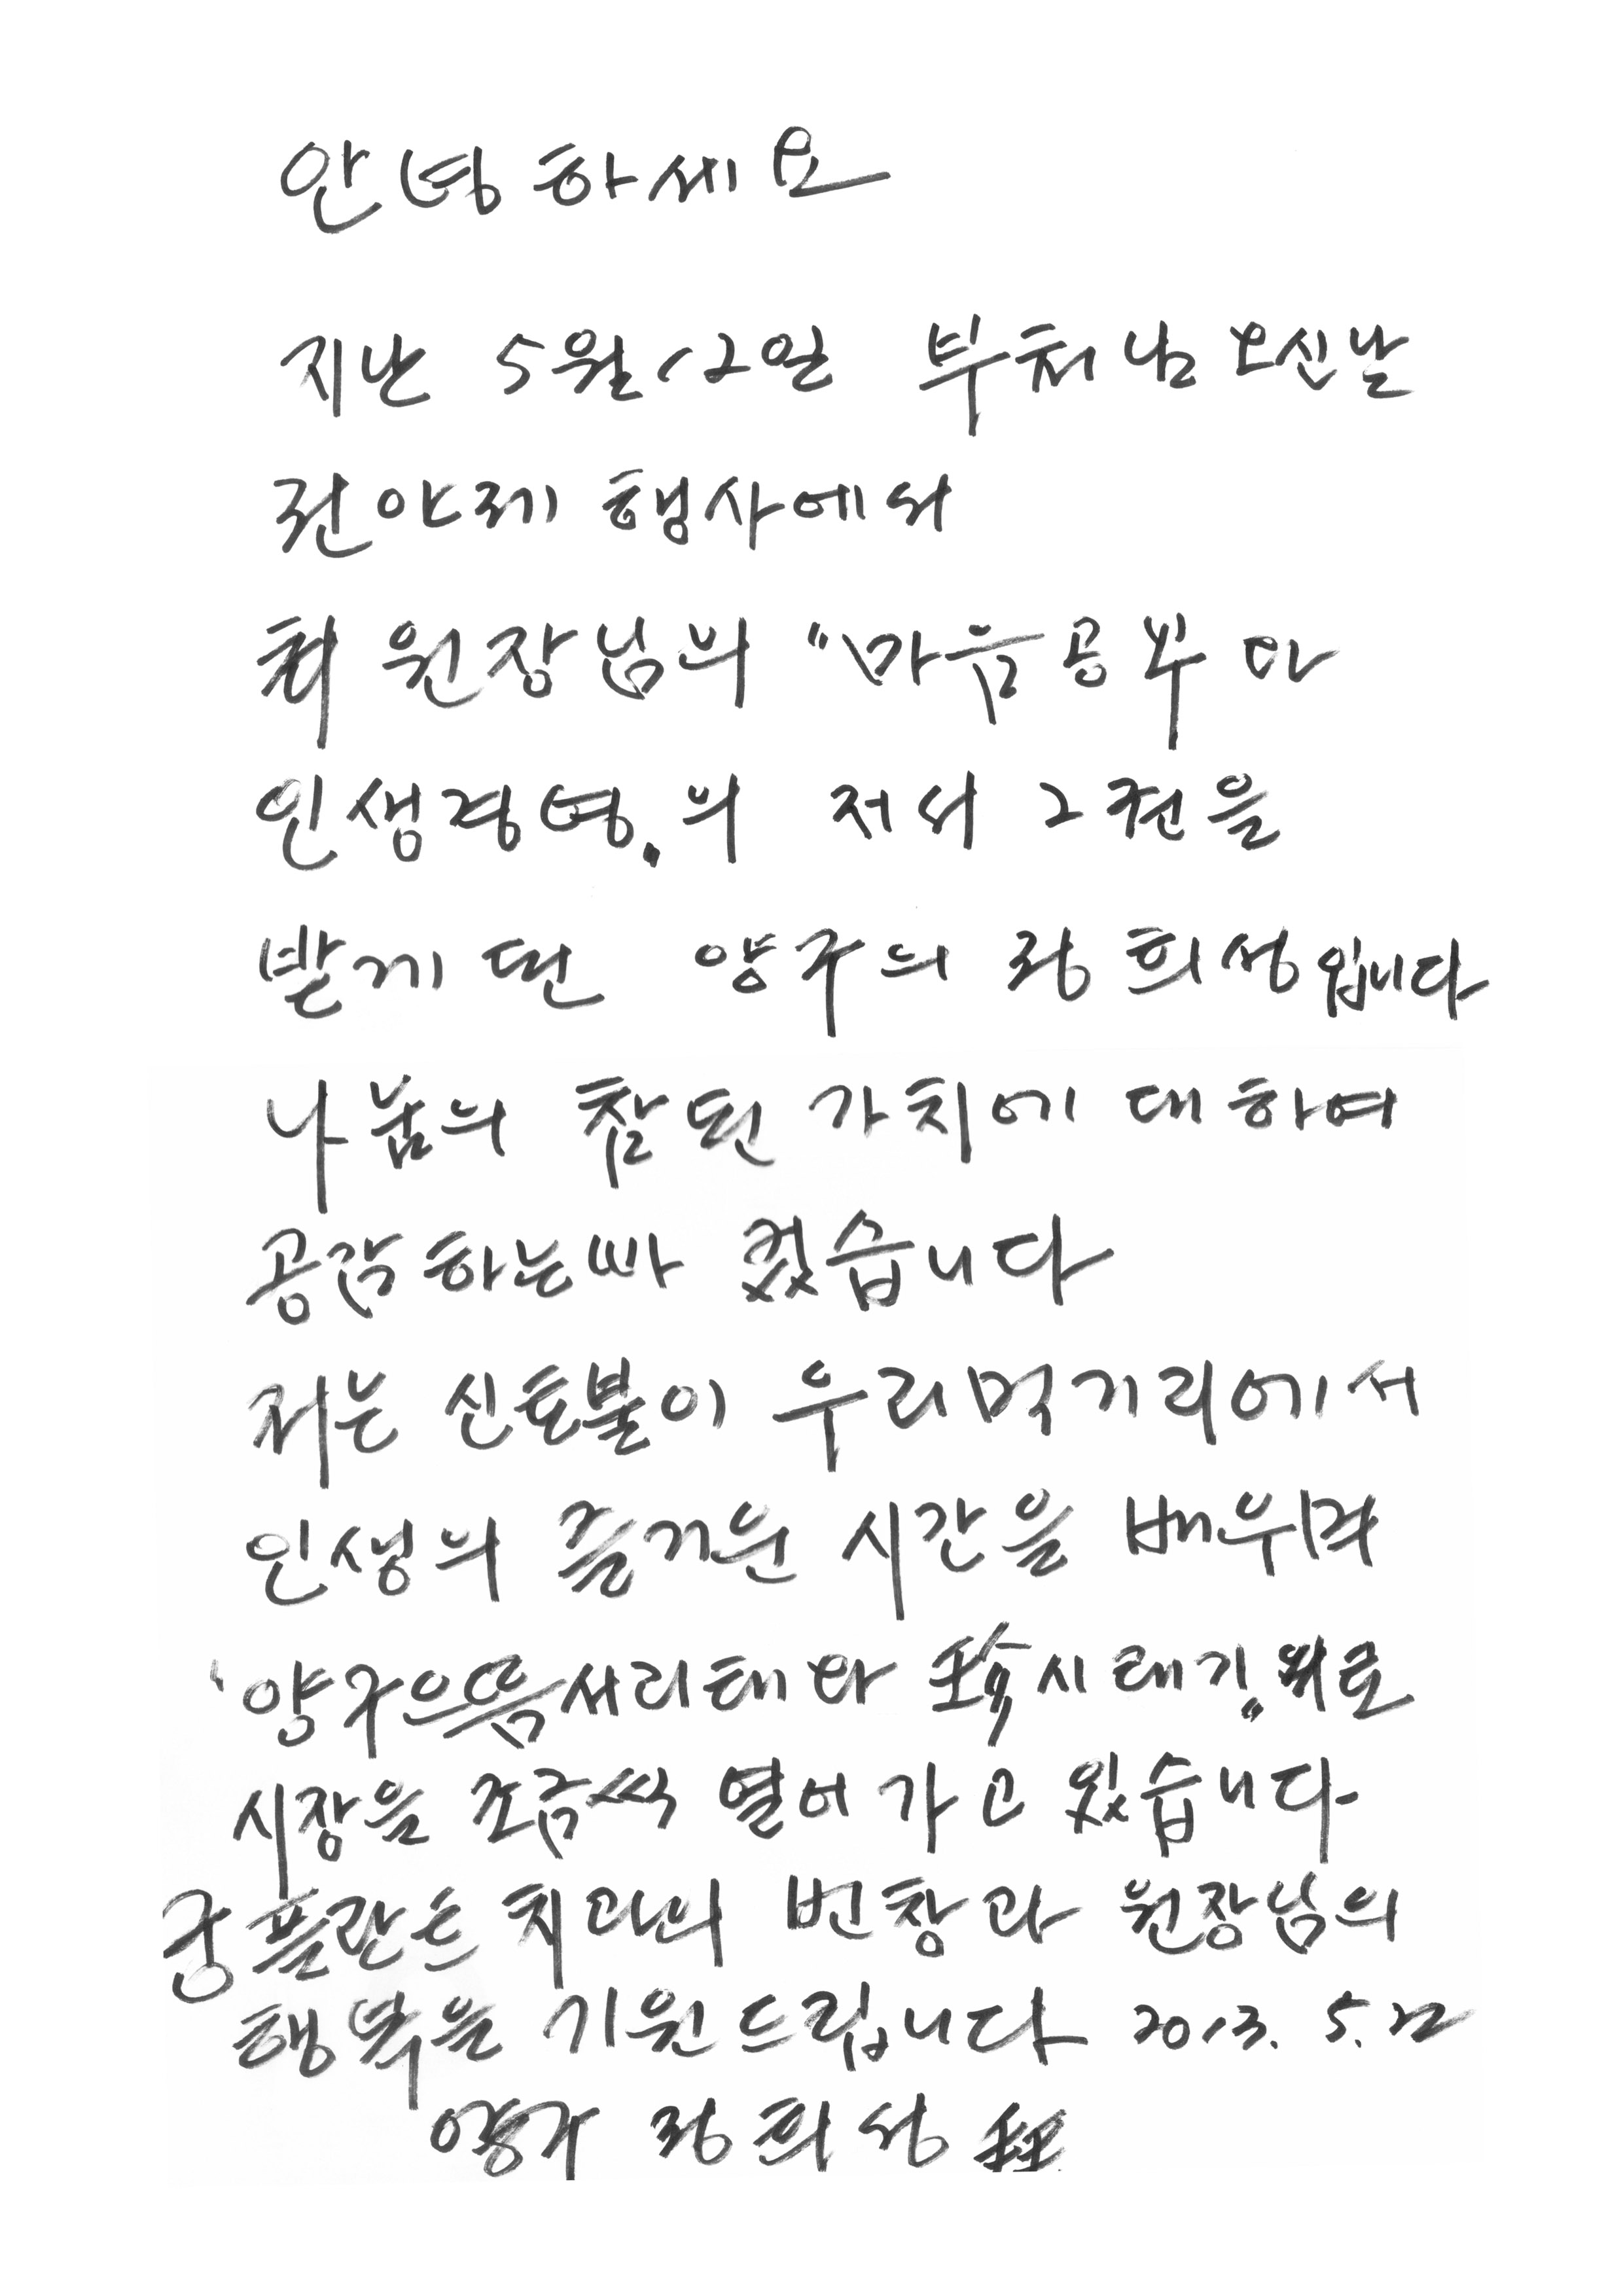 안녕하세요
지난 5월 12일 부처님오신날
전야제 행사에서
최원장님의 "마음공부와
인생경영"의 저서 2권을
받게된 양구의 정희성입니다
나눔의 참된 가치에 대하여
공감하는바 컸습니다
저는 신토불이 우리먹거리에서
인생의 즐거운 시간을 배우며
"양구으뜸서리태와 珍시래기"로
시장을 조금씩 열어가고 있습니다
강플란트 치과의 번창과 원장님의
행복을 기원드립니다 2013. 5. 22
양구 정희성